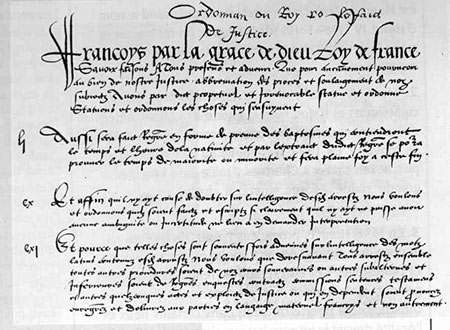 Ordonnan du Roy
de Justice
Francoys par la grace de dieu Roy de france
Savoir faisons A tous presens et advenir Que pour aucunement pourveoir
au bien de nostre Justice abbreviation des proces et soulaigement de noz
subiectz Avons par edit perpetuel et irrevocable statué et ordonné
Statuons et ordonnons les choses qui sensuyvent
lj Aussi sera faict Regre en forme de preuve des baptesmes qui contiendront
le temps et lheure de la nativite et par lextraict dudit Regre se pora
prouver le temps de maiorite ou minorite et fera plaine foy a ceste fin
cx Et affin quil ny ayt cause de doubter sur lintelligence desd arrestz Nous voulons
et ordonnons quilz soient faictz et escriptz si clairement quil ny ayt ne puisse avoir
aucune ambiguite ou incertitude ne lieu a en demander interpretation
cxj Et pource que telles choses sont souvent advenues sur lintelligence des motz
latins contenuz esd arrestz Nous voulons que doresnavant Tous arrestz ensemble
toutes autres procedures soient de noz cours souveraines ou autres subalternes et
Inferieures soient de Regres enquestes contractz commissions sentences testamens
et autres quelzconques actes et exploictz de Justice ou qui en dependent soient prononcez
enregrez et delivrez aux parties en langage maternel francoys et non autrement